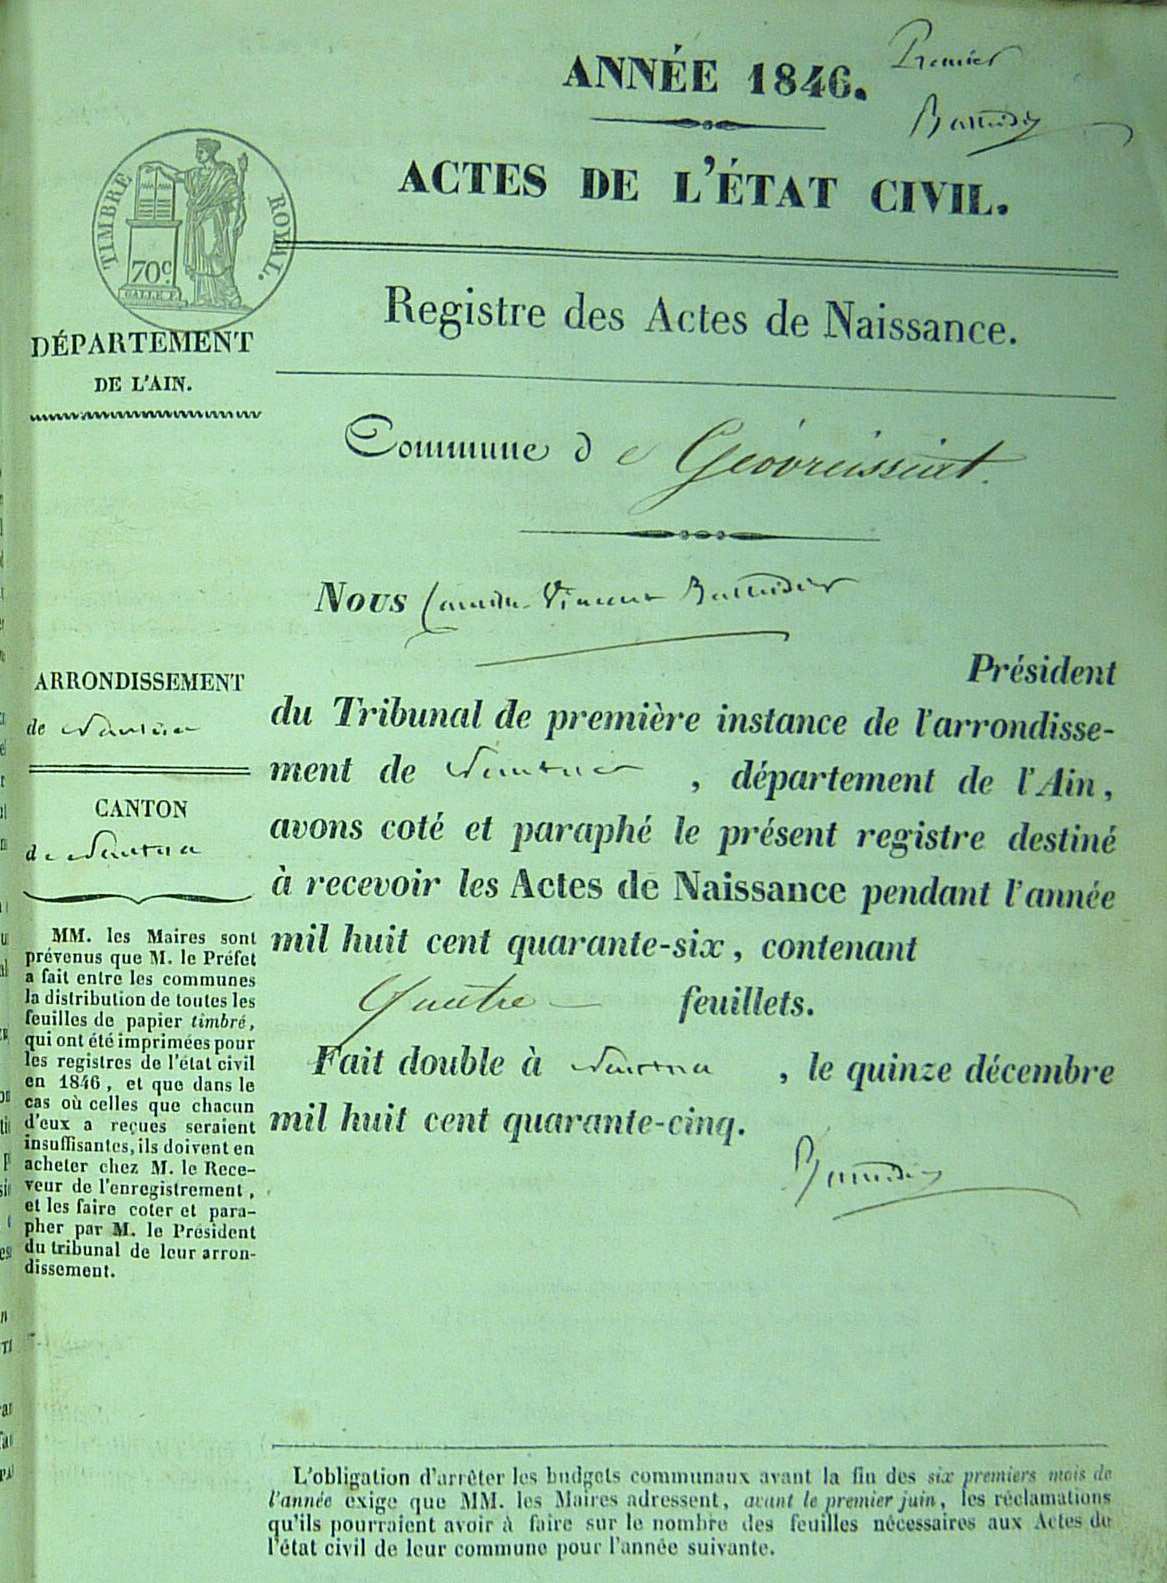 ANNÉE 1846.
Premier
ACTES DE L'ÉTAT CIVIL.
TIMBRE ROYAL.
70c
Registre des Actes de Naissance.
DÉPARTEMENT
DE L'AIN.
Commune de Géovreissiat.
Nous Vincent
Président
du Tribunal de première instance de l'arrondisse-
ment de Nantua, département de l'Ain,
avons coté et paraphé le présent registre destiné
à recevoir les Actes de Naissance pendant l'année
mil huit cent quarante-six, contenant
Quatre feuillets.
Fait double à Nantua, le quinze décembre
mil huit cent quarante-cinq.
ARRONDISSEMENT
de Nantua
CANTON
de Nantua
MM. les Maires sont
prévenus que M. le Préfet
a fait entre les communes
la distribution de toutes les
feuilles de papier timbré,
qui ont été imprimées pour
les registres de l'état civil
en 1846, et que dans le
cas où celles que chacun
d'eux a reçues seraient
insuffisantes, ils doivent en
acheter chez M. le Rece-
veur de l'enregistrement,
et les faire coter et para-
pher par M. le Président
du tribunal de leur arron-
dissement.
L'obligation d'arrêter les budgets communaux avant la fin des six premiers mois de
l'année exige que MM. les Maires adressent, avant le premier juin, les réclamations
qu'ils pourraient avoir à faire sur le nombre des feuilles nécessaires aux Actes de
l'état civil de leur commune pour l'année suivante.